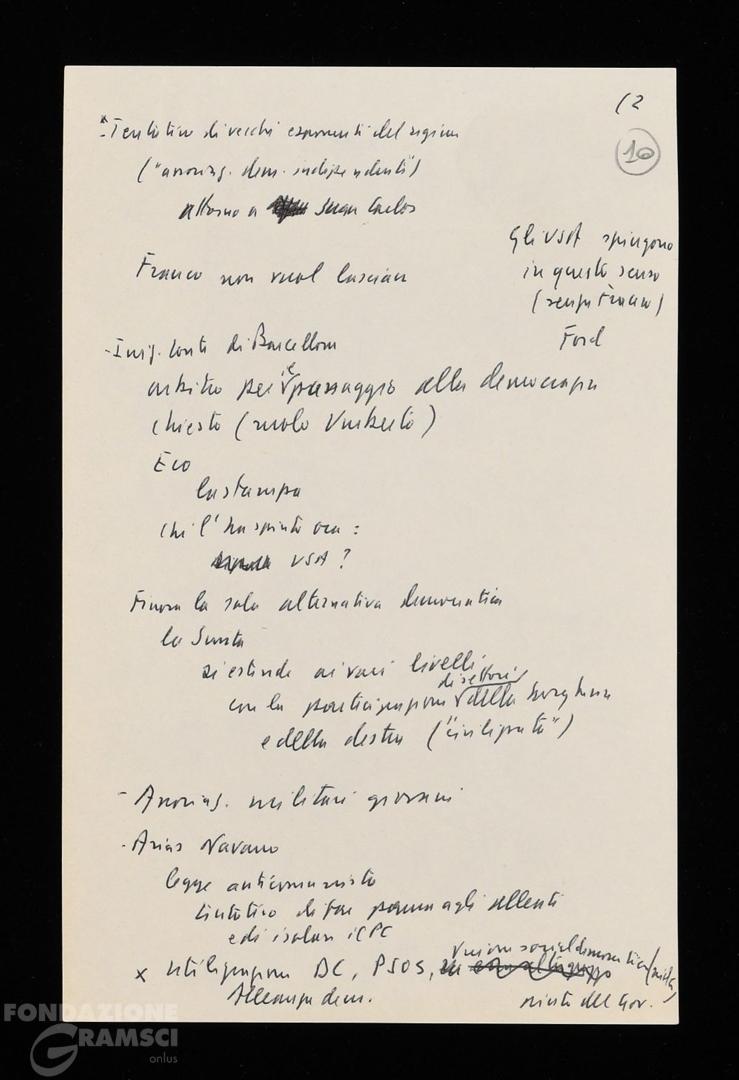 (2
10
- Tentativo di vecchi esponenti del regime
("associaz. dem. indipendenti")
attorno a Juan Carlos
Gli USA spingono
in questo senso
(senza Franco)
Ford
Franco non vuol lasciare
- Conte di Barcellona
arbitro per il passaggio alla democrazia
chiesto (ruolo Umberto)
Eco
la stampa
chi l'ha spinto ora:
USA?
Finora la sola alternativa democratica
la Junta
si estende ai vari livelli
con la partecipazione di settori della borghesia
e della destra ("civilizzata")
- Associaz. militari giovani
- Arias Navarro
legge anticomunista
tentativo di far paura agli alleati
e di isolare il PC
x utilizzazione DC, PSOS, Unione socialdemocratica
Alleanza dem.
del Gov.
FONDAZIONE
GRAMSCI
onlus